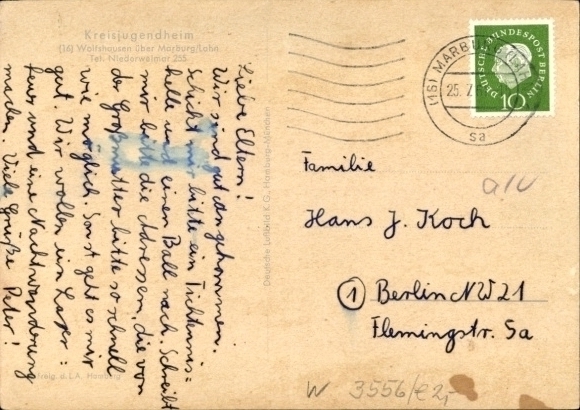 Kreisjugendheim
(16) Wolfshausen über Marburg/Lahn
Tel. Niederweimar 255
Liebe Eltern!
Wir sind gut angekommen.
Schickt mir bitte ein Tichtennis=
kelle und einen Ball nach. Schreibt
mir bitte die Adressen, die von
der Großmutter bitte so schnell
wie möglich. Sonst geht es mir
gut. Wir wollen ein Lager=
feuer und eine Nachtwanderung
machen. Viele Grüße Peter!
Deutsche Luftbild K.G., Hamburg-München
freig. d. L.A. Hamburg
(16) MARBURG
25. 7.
sa
DEUTSCHE BUNDESPOST BERLIN
10
Familie
Hans J. Koch
① Berlin NW 21
Flemingstr. 5a
W 3556/€2,-